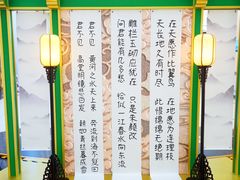 在天愿作比翼鸟 在地愿为连理枝
天长地久有时尽 此恨绵绵无绝期
雕栏玉砌应犹在 只是朱颜改
问君能有几多愁 恰似一江春水向东流
君不见 黄河之水天上来 奔流到海不复回
君不见 高堂明镜悲白发 朝如青丝暮成雪